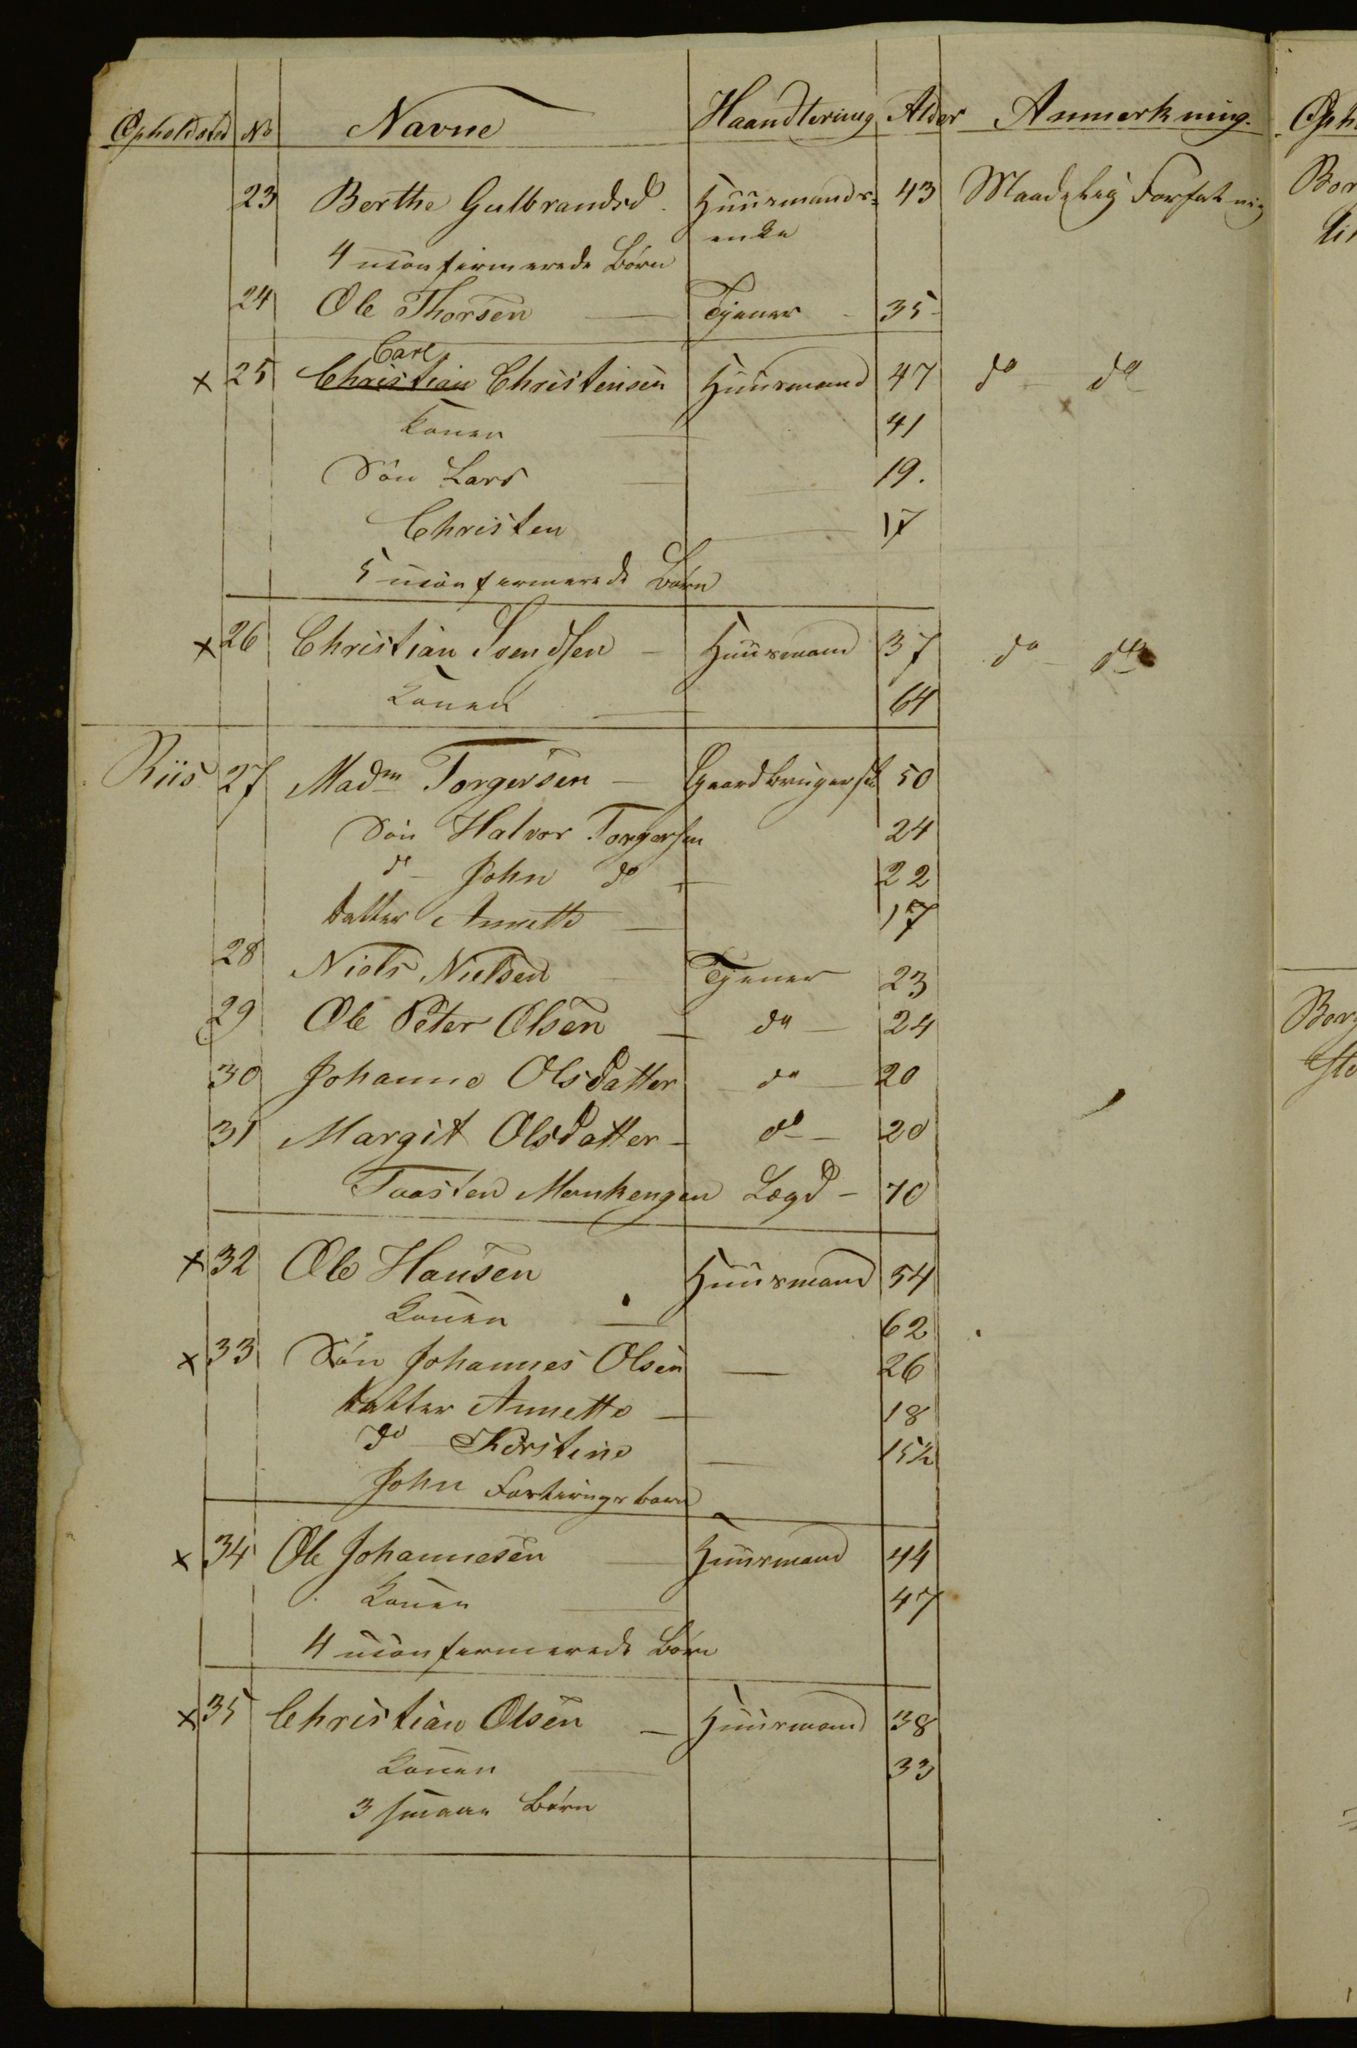 Opholdsted No Navne Haandtering Alder Anmerkning.
23 Berthe Gulbrandsd. Huusmands= 43 Maadelig Forfatning
enke
4 uconfirmerede Børn
24 Ole Thorsen — Tjener - 35-
Carl
x 25 Christian Christensen Huusmand 47 do - do
Konen — 41
Søn Lars — 19.
Christen — 17
5 uconfirmerede Børn
x 26 Christian Svendsen - Huusmand 37 do - do
Konen — 64
Riis 27 Madm Torgersen - Gaardbrugerske 50
Søn Halvor Torgersen 24
do - John do - 22
datter Annette — 17
28 Niels Nielsen Tjener 23
29 Ole Peter Olsen - do - 24
30 Johanne Olsdatter - do - 20
31 Margit Olsdatter - do - 20
Taasten Lægd - 70
x 32 Ole Hansen Huusmand 54
Konen — 62
x 33 Søn Johannes Olsen — 26
datter Annette — 18
do - Kirstine — 15½
John
x 34 Ole Johannesen — Huusmand 44
Konen — 47
4 uconfirmerede Børn
x 35 Christian Olsen - Huusmand 38
Konen — 33
3 smaae Børn